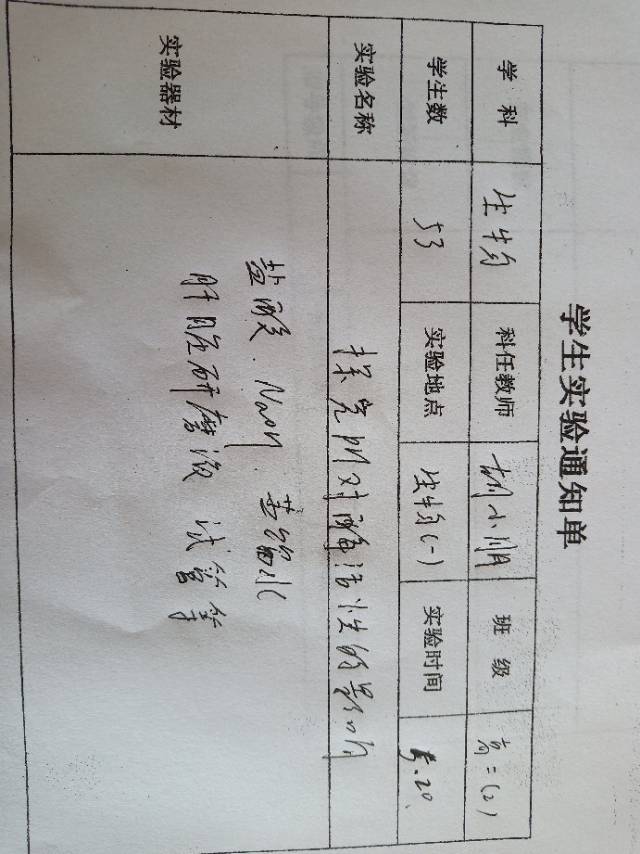 学生实验通知单
学 科 生物 科任教师 胡小顺 班 级 高二(2)
学生数 53 实验地点 生物(一) 实验时间 5.20
实验名称 探究PH对酶活性的影响
实验器材 盐酸、NaOH 蒸馏水
肝脏研磨液 试管等